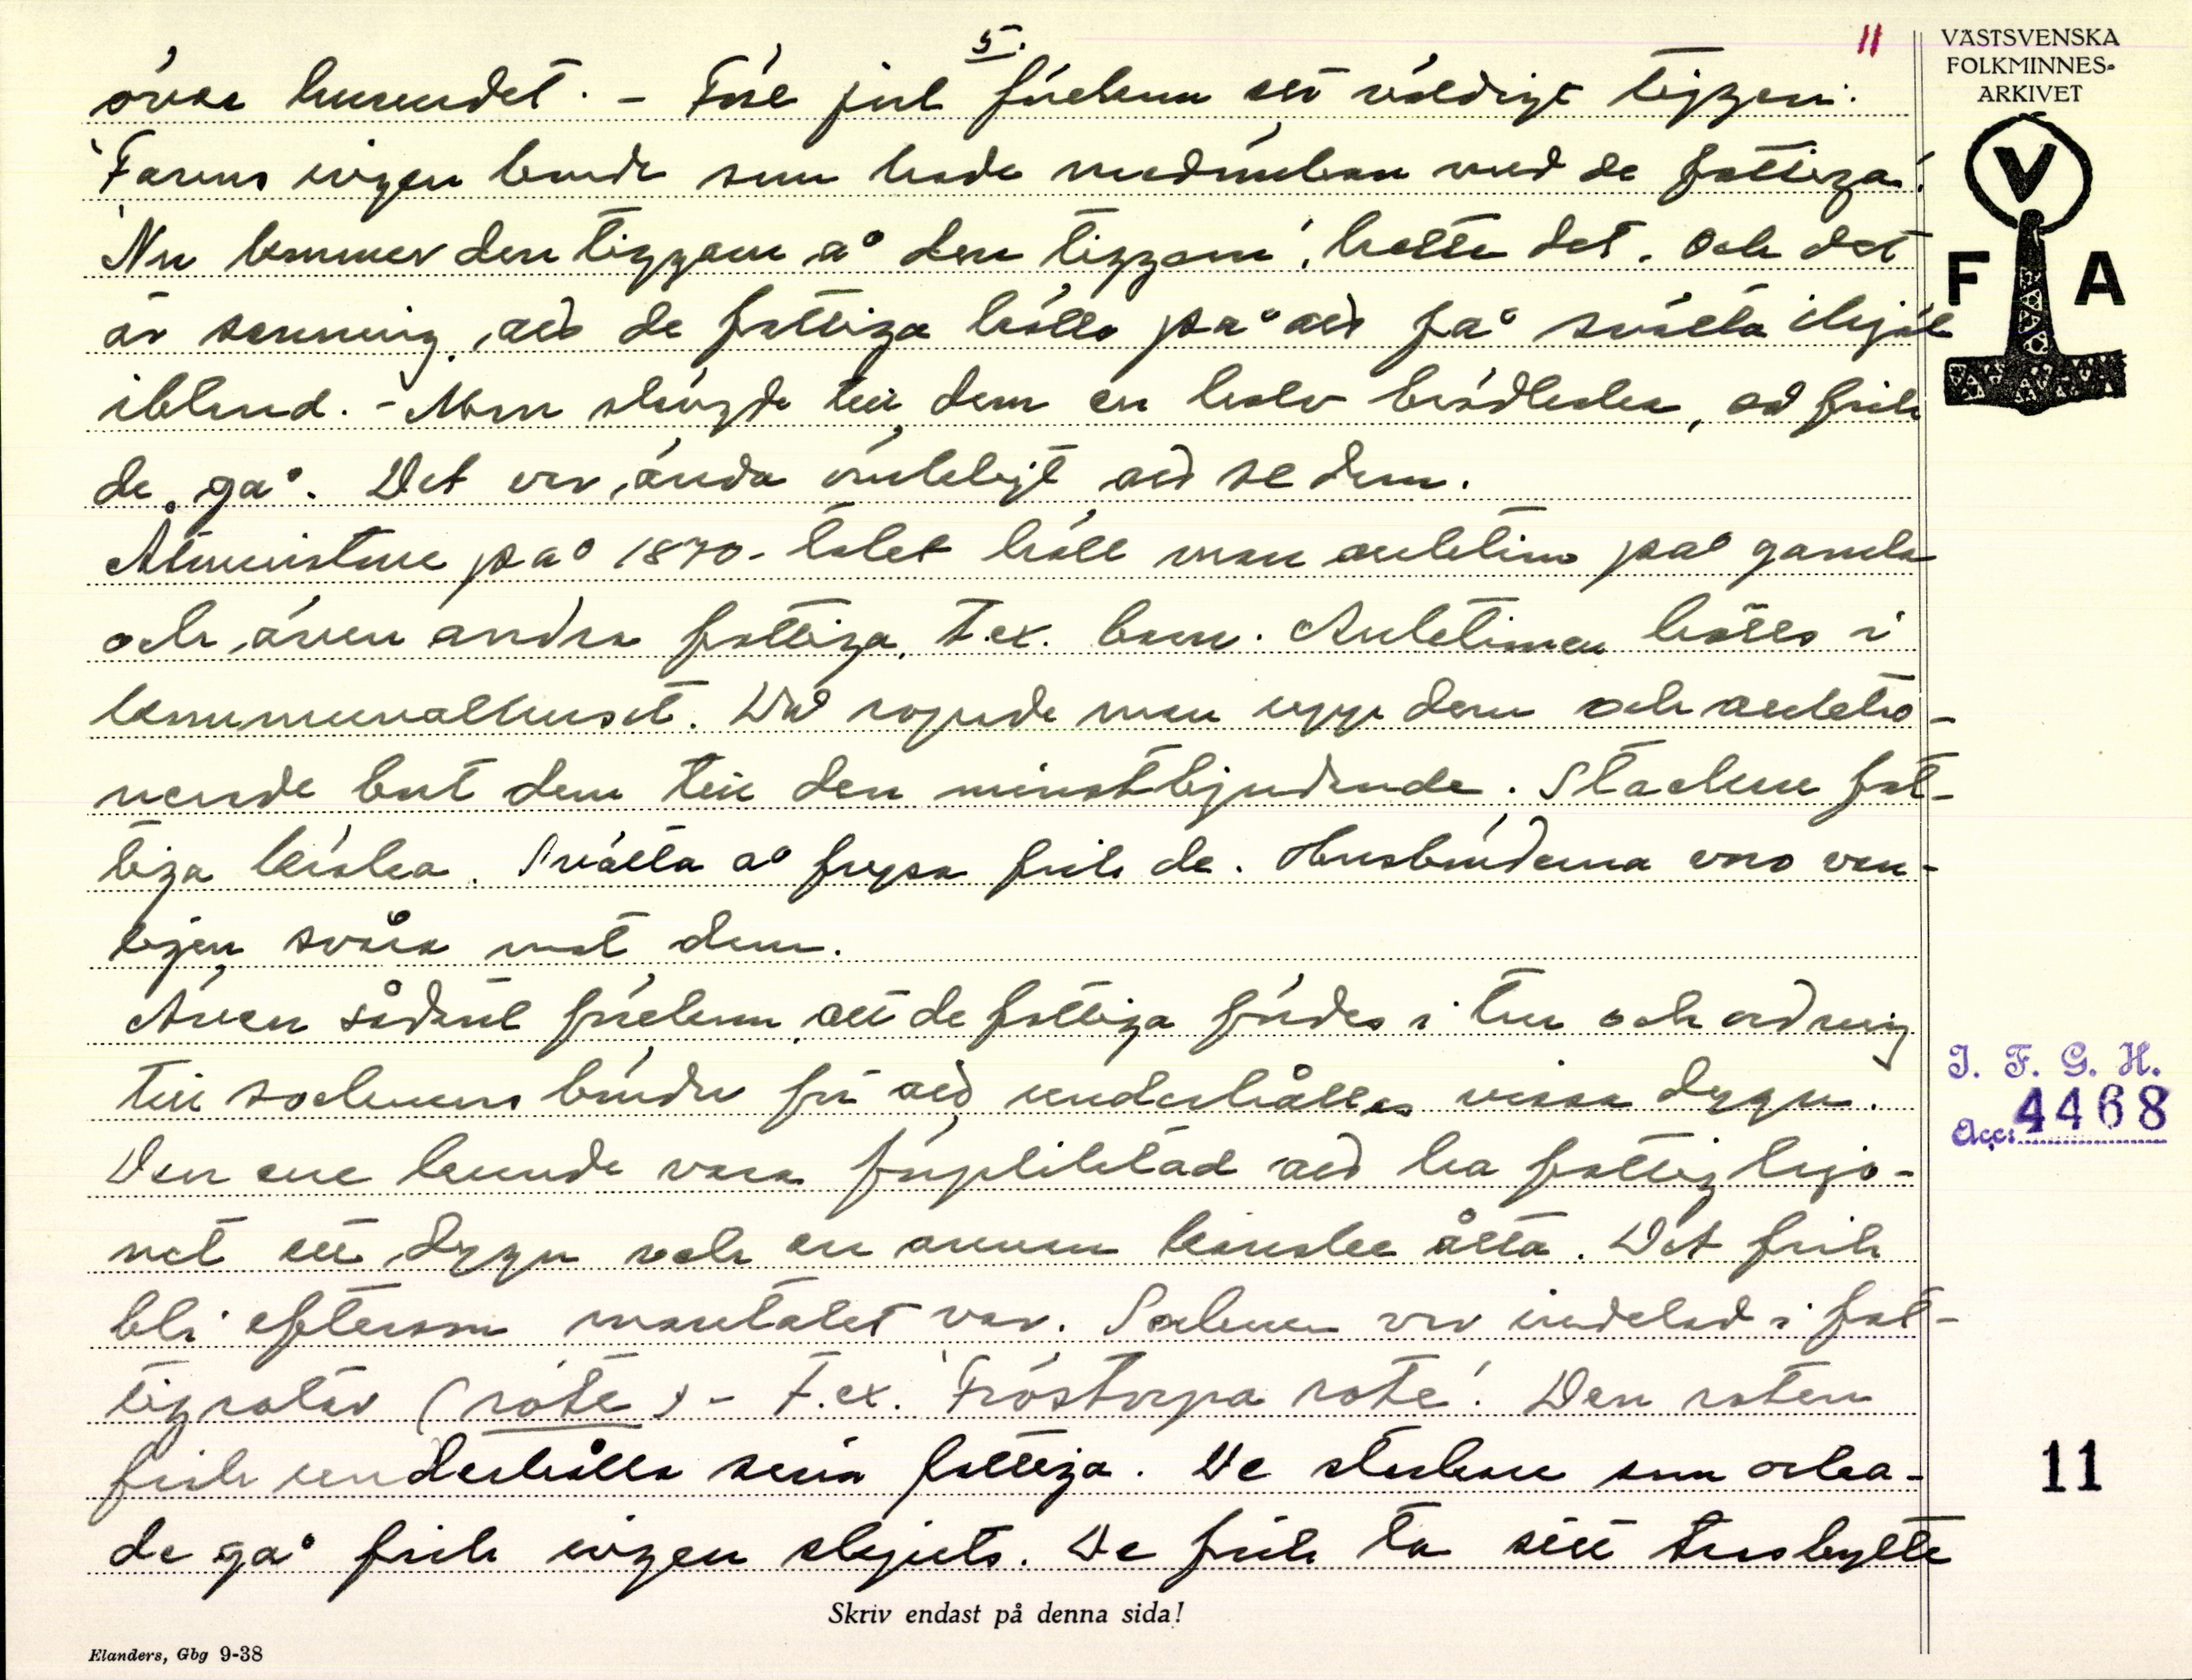 5.
11
övre huvudet. - Före jul förekom ett väldigt tiggeri.
'Fanns ingen bonde som hade medömkan med de fattiga.'
'Nu kommer den tiggaren å den tiggarn', hette det. Och det
är sanning, att de fattiga höllo på att få svälta ihjäl
ibland. - Man slängde till dem en halv brödkaka, så fick
de gå. Det var ända ömkeligt att se dem.
Åtminstone på 1870-talet höll man auktion på gamla
och även andra fattiga, t.ex. barn. Auktionen hölls i
kommunalhuset. Där ropade man upp dem och auktio-
nerade bort dem till den minstbjudande. Stackars fat-
tiga krakar. Svälta å frysa fick de. Husbönderna voro van-
ligen svåra mot dem.
Även sådant förekom, att de fattiga fördes i tur och ordning
till socknens bönder för att underhållas vissa dygn.
Den ene kunde vara förpliktad att ha fattighjo-
net ett dygn och en annan kanske åtta. Det fick
bli eftersom mantalet var. Socknen var indelad i fat-
tigrotar (rote) - t.ex. 'Fröstorpa rote'. Den roten
fick underhålla sina fattiga. De stackare som orka-
de gå fick ingen skjuts. De fick ta sitt trasbytte
VÄSTSVENSKA
FOLKMINNES-
ARKIVET
V
F A
I. F. G. H.
Acc: 4468
11
Skriv endast på denna sida!
Elanders, Gbg 9-38